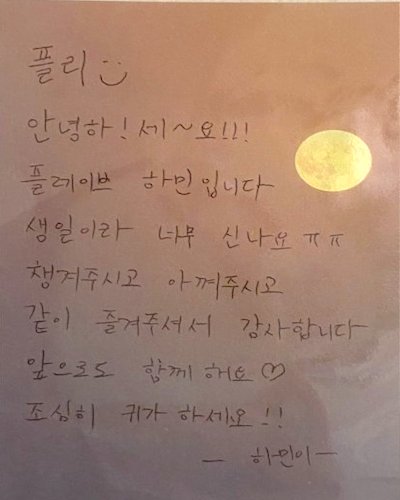 플리 :)
안녕하!세~요!!!
플레이브 하민입니다
생일이라 너무 신나요 ㅠㅠ
챙겨주시고 아껴주시고
같이 즐겨주셔서 감사합니다
앞으로도 함께 해요 ♡
조심히 귀가 하세요 !!
— 하민이 —